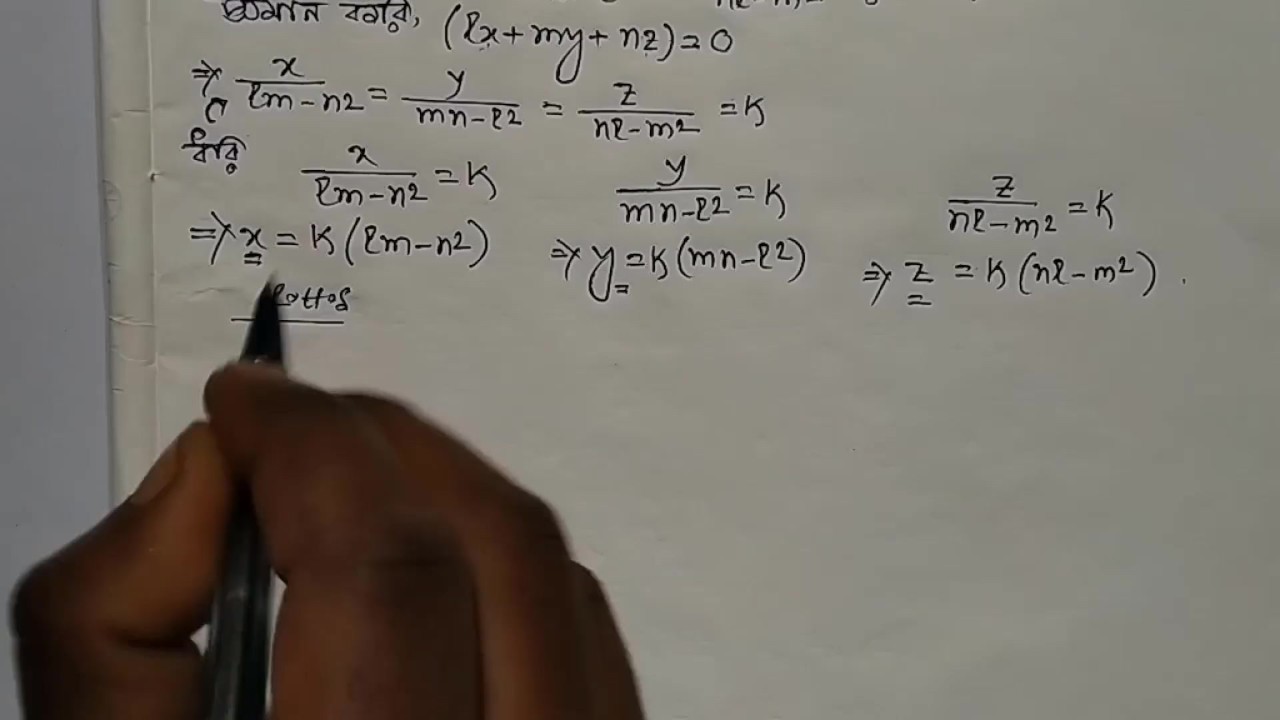 প্রমাণ করি, (lx + my + nz) = 0
⇒ x/(lm − n2) = y/(mn − l2) = z/(nl − m2) = K
ধরি x/(lm − n2) = K y/(mn − l2) = K z/(nl − m2) = K
⇒ x = K(lm − n2) ⇒ y = K(mn − l2) ⇒ z = K(nl − m2).